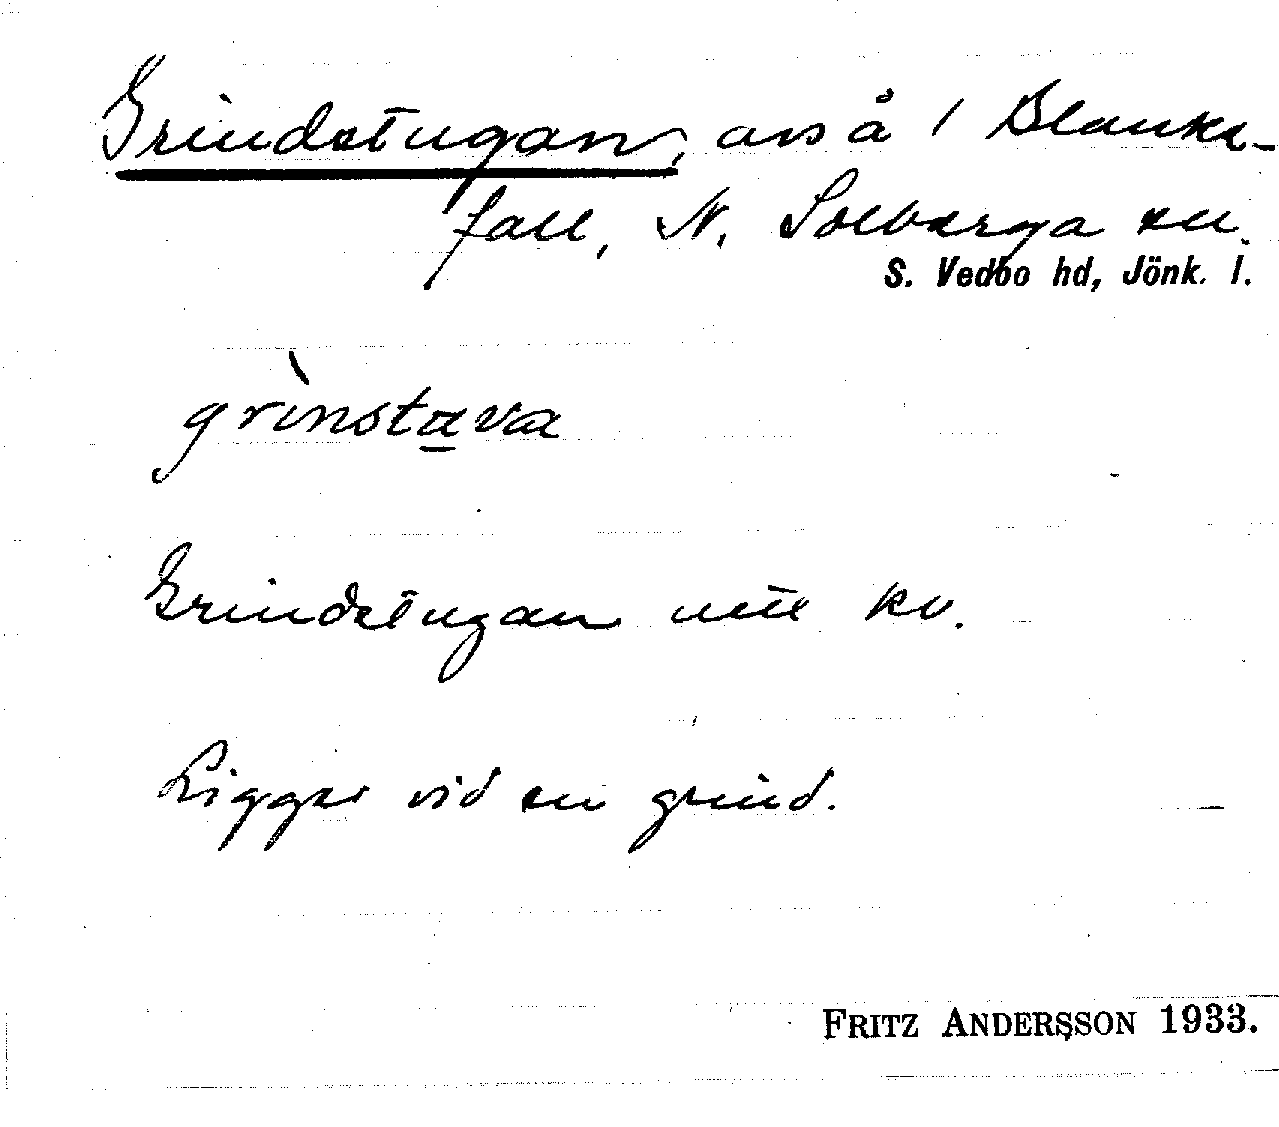 Grindstugan, avs å 1 Blanke-
fall, N. Solberga sn.
S. Vedbo hd, Jönk. l.
grìnstava
Grindstugan uttl kv.
Ligger vid en grind.
FRITZ ANDERSSON 1933.